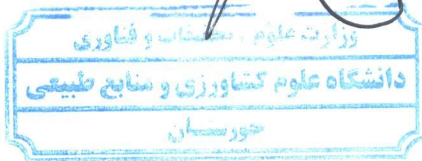 وزارت علوم، تحقیقات و فناوری
دانشگاه علوم کشاورزی و منابع طبیعی
خوزستان